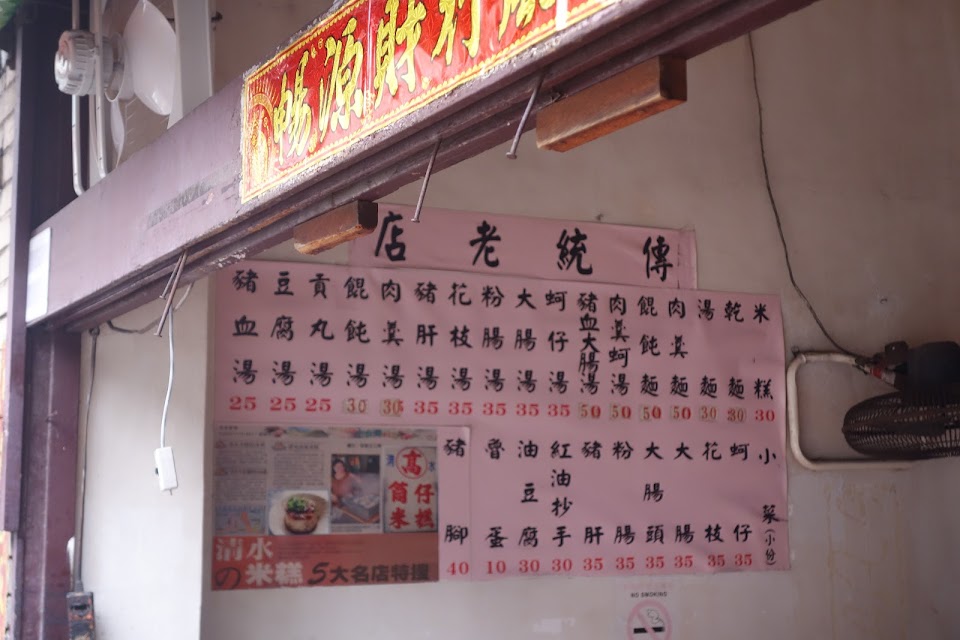 利財源暢
傳統老店
米糕 30
乾麵 30
湯麵 30
肉羹麵 50
餛飩麵 50
肉羹蚵湯 50
豬血大腸湯 50
蚵仔湯 35
大腸湯 35
粉腸湯 35
花枝湯 35
豬肝湯 35
肉羹湯
餛飩湯 30
貢丸湯 25
豆腐湯 25
豬血湯 25
小菜(小份)
蚵仔 35
花枝 35
大腸 35
大腸頭 35
粉腸 35
豬肝 35
紅油抄手 30
油豆腐 30
魯蛋 10
豬腳 40
筒仔
米糕
清水
の米糕5大名店特搜
NO SMOKING